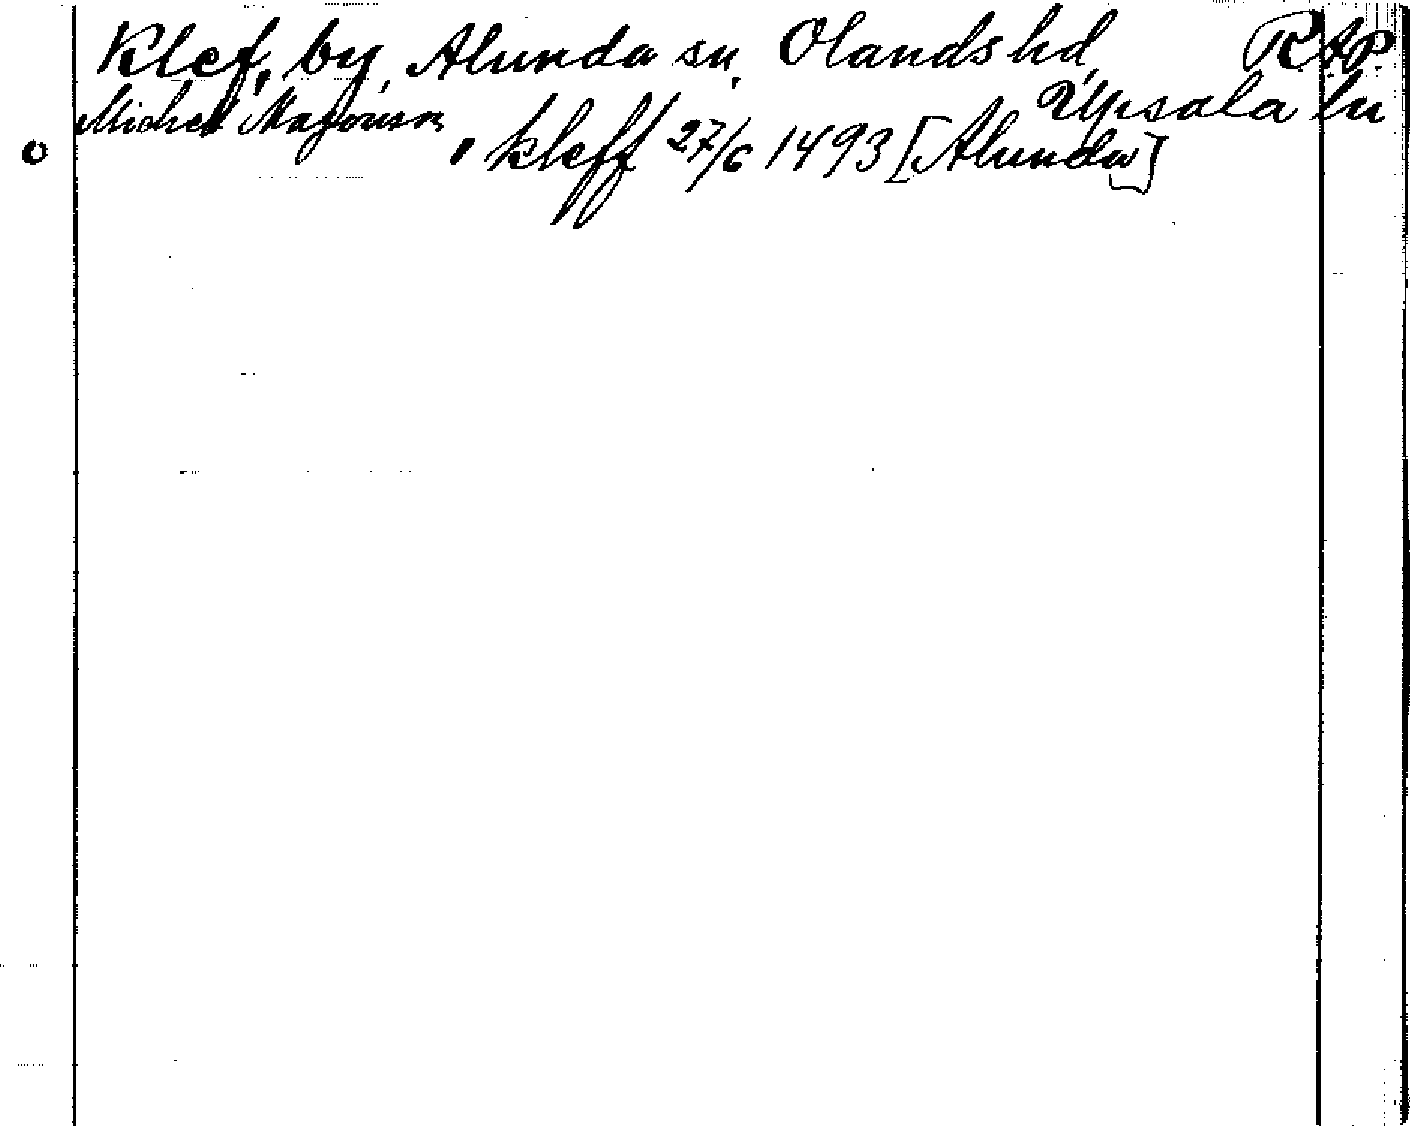 Klef, by, Alunda sn, Olands hd, RAP.
Upsala län
Michel Magnusson, kleff 27/6 1493 [Alunda]